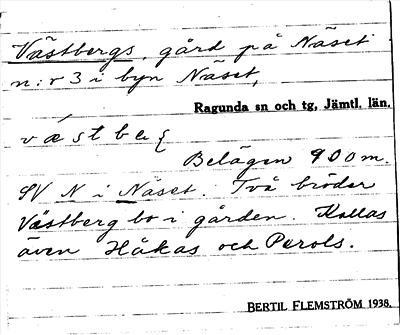 Västbergs, gård på Näset
n:r 3 i byn Näset,
Ragunda sn och tg, Jämtl. län.
Belägen 900 m.
SV N i Näset. Två bröder
Västberg bo i gården. Kallas
även Håkas och Perols.
BERTIL FLEMSTRÖM 1938.